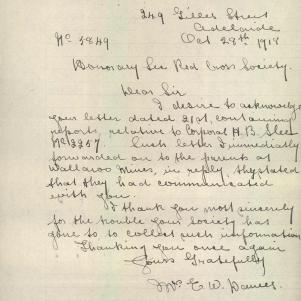 249 Gilles Street
Adelaide
No 5849 Oct 28th 1918
Honorary Sec Red Cross Society.
Dear Sir
I desire to acknowledge
your letter dated 21st, containing
reports, relative to Corporal H.B. Slee
No 2257 Such letter I immediately
forwarded on to the parents at
Wallaroo Mines, in reply they stated
that they had communicated
with you.
I thank you most sincerely
for the trouble your Society has
gone to to collect such information
Thanking you once again
Yours Gratefully
Mrs E. W.